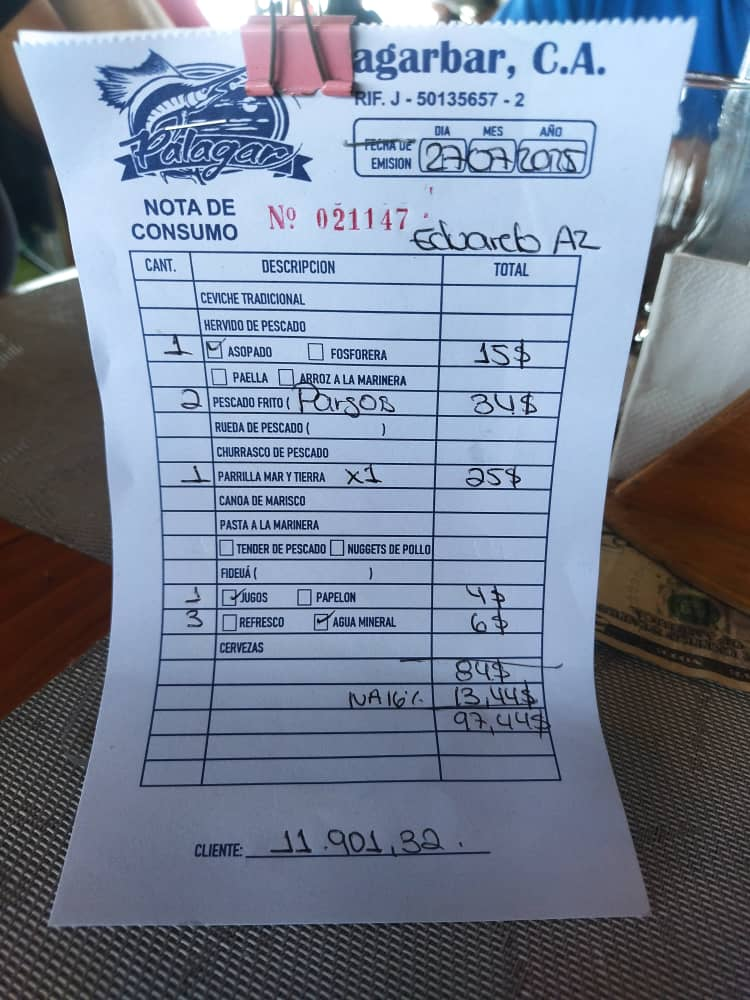 Palagar
agarbar, C.A.
RIF. J - 50135657 - 2
FECHA DE EMISION DIA MES AÑO
27 07 2025
NOTA DE CONSUMO Nº 021147
Eduardo AZ
CANT. DESCRIPCION TOTAL
CEVICHE TRADICIONAL
HERVIDO DE PESCADO
1 ASOPADO FOSFORERA 15$
PAELLA ARROZ A LA MARINERA
2 PESCADO FRITO ( Pargos 34$
RUEDA DE PESCADO ( )
CHURRASCO DE PESCADO
1 PARRILLA MAR Y TIERRA x1 25$
CANOA DE MARISCO
PASTA A LA MARINERA
TENDER DE PESCADO NUGGETS DE POLLO
FIDEUÁ ( )
1 JUGOS PAPELON 4$
3 REFRESCO AGUA MINERAL 6$
CERVEZAS
84$
IVA 16% 13,44$
97,44$
CLIENTE: 11.901,32.